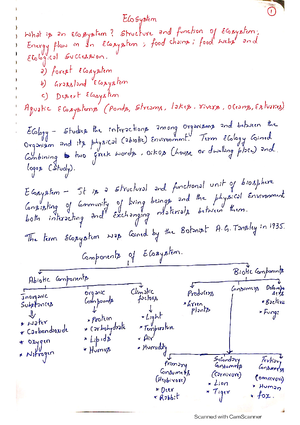 Ecosystem
1
What is an ecosystem? Structure and function of ecosystem;
Energy flow in an Ecosystem; food chains; food webs and
Ecological Succession.
a) Forest Ecosystem
b) Grassland Ecosystem
c) Desert Ecosystem
Aquatic Ecosystems (Ponds, Streams, lakes, rivers, oceans, Estuaries)
Ecology - Studies the interactions among organisms and between the
organism and its physical (abiotic) Environment. Term ecology coined
combining two greek words - oikos (house or dwelling place) and
logos (study).
Ecosystem - It is a structural and functional unit of biosphere
consisting of community of living beings and the physical Environment
both interacting and exchanging materials between them.
The term Ecosystem was coined by the Botanist A.G. Tansley in 1935.
Components of Ecosystem.
Abiotic Components
Biotic Components
Inorganic Substances
* Water
* Carbondioxide
* Oxygen
* Nitrogen
Organic Compounds
* Protein
* Carbohydrate
* Lipids
* Humus
Climatic factors
* Light
* Temperature
* Air
* Humidity
Producers
* Green Plants
Consumers
* Bacteria
* Fungi
Primary Consumers (Herbivores)
* Deer
* Rabbit
Secondary Consumers (Carnivores)
* Lion
* Tiger
Tertiary Consumers (omnivores)
* Human
* Fox.
Scanned with CamScanner